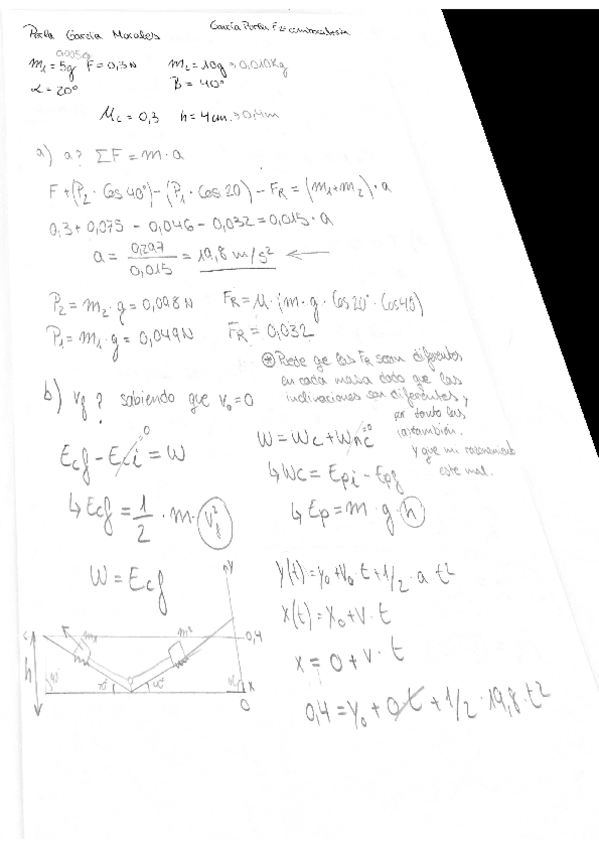 Perla García Morales
García Perla F2
0,005g
m₁ = 5g F = 0,3 N m₂ = 10g → 0,010Kg
α = 20° B = 40°
μc = 0,3 h = 4cm → 0,4m
a) a? ΣF = m · a
F + (P₂ · Cos 40°) - (P₁ · Cos 20) - FR = (m₁ + m₂) · a
0,3 + 0,075 - 0,046 - 0,032 = 0,015 · a
a = 0,297 / 0,015 = 19,8 m/s² ←
P₂ = m₂ · g = 0,098N FR = μ · (m · g · Cos 20° · Cos 40)
P₁ = m₁ · g = 0,049N FR = 0,032
b) vf? sabiendo que v₀ = 0
? 
⊛ Puede qe las FR sean diferentes
en cada masa dado que las
inclinaciones son diferentes y
por tanto las
(a) también.
Y que mi razonamiento
este mal.
Ecf - Eci = W
0
W = Wc + Wnc
=0
↳ Wc = Epi - Epf
↳ Ecf = 1/2 · m · vf²
↳ Ep = m · g · h
W = Ecf
y(t) = y₀ + V₀ · t + 1/2 · a t²
x(t) = x₀ + v · t
x = 0 + v · t
0,4 = y₀ + 0t + 1/2 · 19,8 · t²
y
m₁
m²
0,4
h
x
0